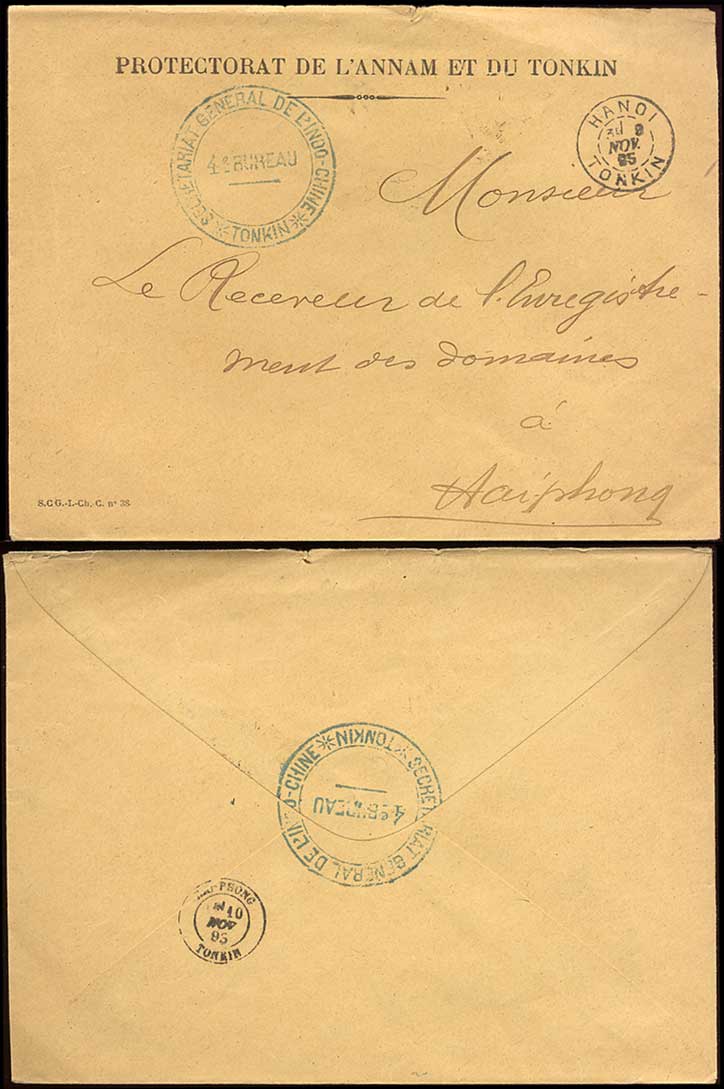 PROTECTORAT DE L'ANNAM ET DU TONKIN
SECRETARIAT GENERAL DE L'INDO-CHINE * TONKIN *
4e BUREAU
HANOI
9
NOV.
95
TONKIN
Monsieur
Le Receveur de l'Enregistre-
ment des domaines
à
Haiphong
S.C G.-I.-Ch. C. n° 38
SECRETARIAT GENERAL DE L'INDO-CHINE * TONKIN *
4e BUREAU
HAI-PHONG
10
NOV
95
TONKIN